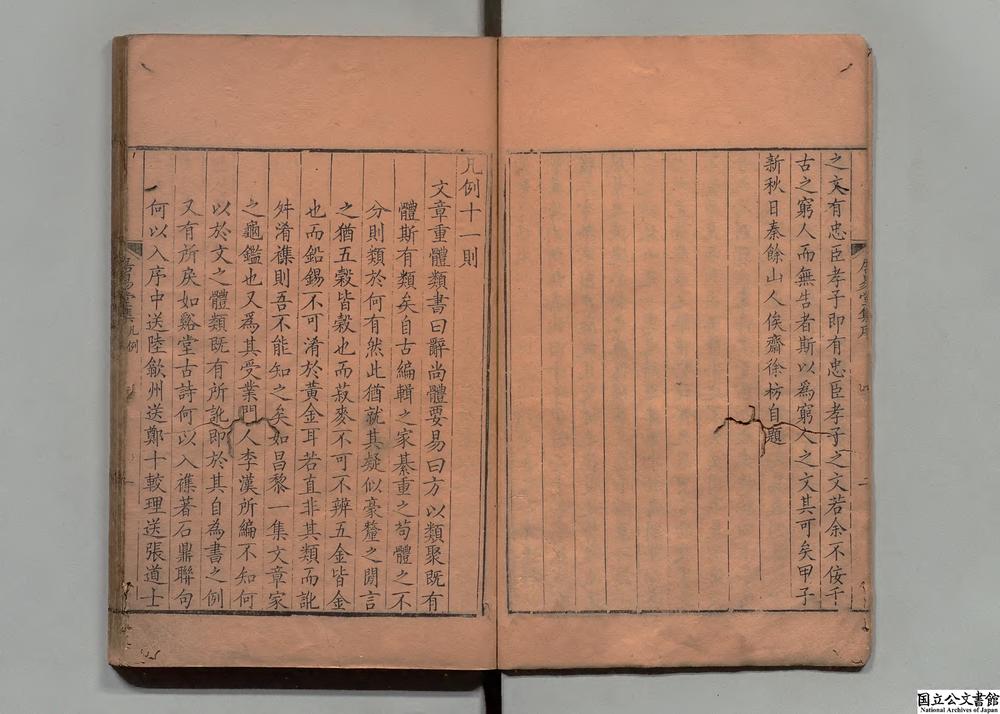 之文有忠臣孝子即有忠臣孝子之文若余不佞千
古之窮人而無告者斯以爲窮人之文其可矣甲子
新秋日秦餘山人俟齋徐枋自題
凡例十一則
文章重體類書曰辭尚體要易曰方以類聚既有
體斯有類矣自古編輯之家綦重之苟體之不
分則類於何有然此猶就其疑似豪釐之閒言
之猶五穀皆穀也而菽麥不可不辨五金皆金
也而鉛錫不可淆於黃金耳若直非其類而訛
舛淆襍則吾不能知之矣如昌黎一集文章家
之龜鑑也又爲其受業門人李漢所編不知何
以於文之體類既有所訛即於其自為書之例
又有所戾如谿堂古詩何以入襍著石鼎聯句
何以入序中送陸歙州送鄭十較理送張道士
居易堂集 凡例
國立公文書館
National Archives of Japan